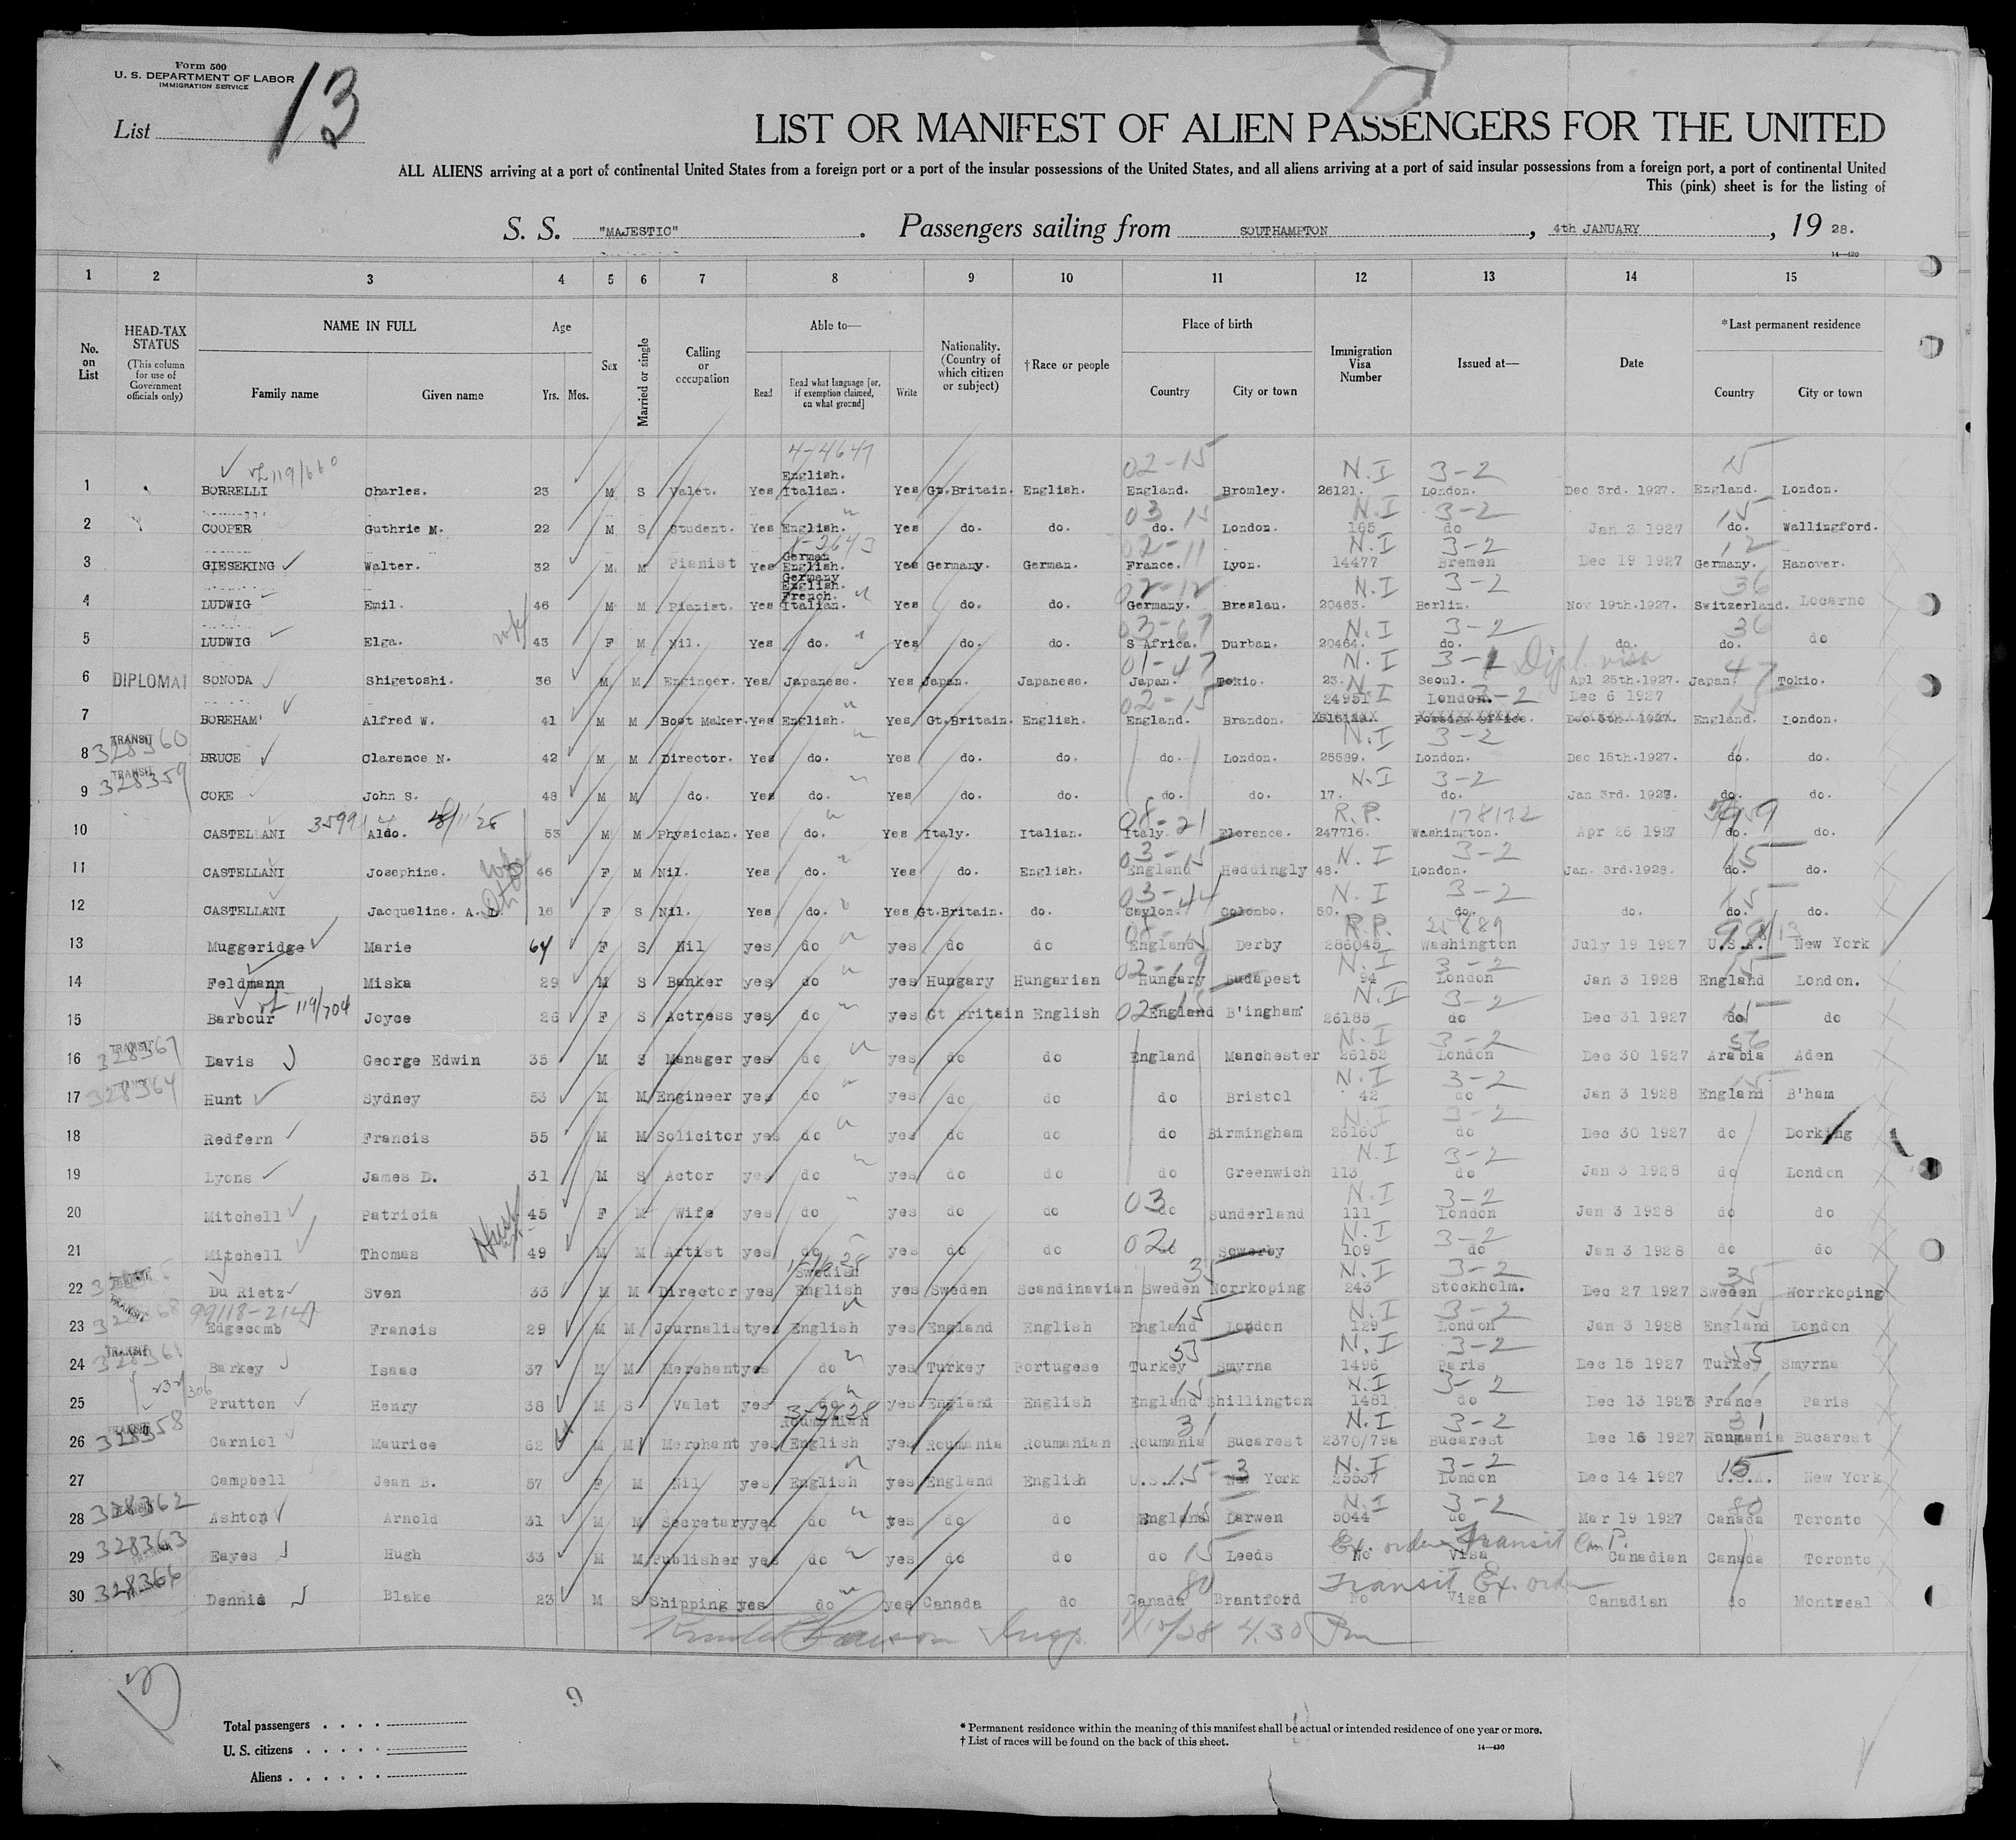 Form 500
U. S. DEPARTMENT OF LABOR
IMMIGRATION SERVICE
List 13
LIST OR MANIFEST OF ALIEN PASSENGERS FOR THE UNITED
ALL ALIENS arriving at a port of continental United States from a foreign port or a port of the insular possessions of the United States, and all aliens arriving at a port of said insular possessions from a foreign port, a port of continental United
This (pink) sheet is for the listing of
S. S. "MAJESTIC" . Passengers sailing from SOUTHAMPTON , 4th JANUARY , 19 28.
14—430
1 2 3 4 5 6 7 8 9 10 11 12 13 14 15
No. on List HEAD-TAX STATUS (This column for use of Government officials only) NAME IN FULL Family name Given name Age Yrs. Mos. Sex Married or single Calling or occupation Able to— Read Read what language [or, if exemption claimed, on what ground] Write Nationality. (Country of which citizen or subject) † Race or people Place of birth Country City or town Immigration Visa Number Issued at— Date *Last permanent residence Country City or town
4-4647 02-15 N.I 3-2 15
1 BORRELLI Charles. 23 M S Valet. Yes English. Italian. Yes Gt.Britain. English. England. Bromley. 26121. London. Dec 3rd. 1927. England. London.
03 15 N.I 3-2 15
2 COOPER Guthrie M. 22 M S Student. Yes English. Yes do. do. do. London. 165 do Jan 3 1927 do. Wallingford.
02-11 N.I 3-2 12
3 GIESEKING Walter. 32 M M Pianist Yes German English. Yes Germany. German. France. Lyon. 14477 Bremen Dec 19 1927 Germany. Hanover.
02-12 N.I 3-2 36
4 LUDWIG Emil. 46 M M Pianist. Yes Germany English. French. Italian. Yes do. do. Germany. Breslau. 20463. Berlin. Nov 19th.1927. Switzerland. Locarno
wife 03-67 N.I 3-2 36
5 LUDWIG Elga. 43 F M Nil. Yes do. Yes do. do. S Africa. Durban. 20464. do. do. do. do
01-47 N.I 3-1 Dipl. visa 47
6 DIPLOMAT SONODA Shigetoshi. 36 M M Engineer. Yes Japanese. Yes Japan. Japanese. Japan. Tokio. 23. Seoul. Apl 25th.1927. Japan Tokio.
02-15 N.I 24951 London. 3-2 Dec 6 1927
7 BOREHAM Alfred W. 41 M M Boot Maker. Yes English. Yes Gt.Britain. English. England. Brandon. Foreign Office. Dec 5th. 1927. England. London.
TRANSIT 328360 N.I 3-2
8 BRUCE Clarence N. 42 M M Director. Yes do. Yes do. do. do. London. 25589. London. Dec 15th.1927. do. do.
TRANSIT 328359 N.I 3-2
9 COKE John S. 48 M M do. Yes do. Yes do. do. do. do. 17. do. Jan 3rd. 1928. do. do.
08-21 R.P. 178172
10 CASTELLANI Aldo. 53 M M Physician. Yes do. Yes Italy. Italian. Italy. Florence. 247716. Washington. Apr 26 1927 do. do.
03-15 N.I 3-2 15
11 CASTELLANI Josephine. 46 F M Nil. Yes do. Yes do. English. England Heddingly 48. London. Jan. 3rd.1928. do. do.
03-44 N.I 3-2 15
12 CASTELLANI Jacqueline. A. D. 16 F S Nil. Yes do. Yes Gt.Britain. do. Ceylon. Colombo. 50. do. do. do. do.
R.P. 25889
13 Muggeridge Marie 64 F S Nil yes do yes do do England Derby 286045 Washington July 19 1927 U.S.A. New York
02-19 N.I 3-2 15
14 Feldmann Miska 29 M S Banker yes do yes Hungary Hungarian Hungary Budapest 94 London Jan 3 1928 England London.
119/704 02-15 N.I 3-2
15 Barbour Joyce 26 F S Actress yes do yes Gt Britain English England B'ingham 26185 do Dec 31 1927 do do
TRANSIT 328367 N.I 3-2 56
16 Davis George Edwin 35 M S Manager yes do yes do do England Manchester 26152 London Dec 30 1927 Arabia Aden
328364 N.I 3-2 15
17 Hunt Sydney 53 M M Engineer yes do yes do do do Bristol 42 do Jan 3 1928 England B'ham
N.I 3-2
18 Redfern Francis 55 M M Solicitor yes do yes do do do Birmingham 26160 do Dec 30 1927 do Dorking
N.I 3-2
19 Lyons James D. 31 M S Actor yes do yes do do do Greenwich 113 do Jan 3 1928 do London
03 N.I 3-2
20 Mitchell Patricia 45 F M Wife yes do yes do do do Sunderland 111 London Jan 3 1928 do do
02 N.I 3-2
21 Mitchell Thomas 49 M M Artist yes do yes do do do Sowerby 109 do Jan 3 1928 do do
TRANSIT N.I 3-2 35
22 Du Rietz Sven 33 M M Director yes Swedish English yes Sweden Scandinavian Sweden Norrkoping 243 Stockholm. Dec 27 1927 Sweden Norrkoping
TRANSIT 15 N.I 3-2 15
23 Edgecomb Francis 29 M M Journalist yes English yes England English England London 129 London Jan 3 1928 England London
TRANSIT 328361 53 N.I 3-2 53
24 Barkey Isaac 37 M M Merchant yes do yes Turkey Portugese Turkey Smyrna 1496 Paris Dec 15 1927 Turkey Smyrna
15 N.I 3-2 11
25 Prutton Henry 38 M S Valet yes do yes England English England Shillington 1481 do Dec 13 1927 France Paris
TRANSIT 328358 31 N.I 3-2 31
26 Carniol Maurice 62 M M Merchant yes Roumanian English yes Roumania Roumanian Roumania Bucarest 2370/79a Bucarest Dec 16 1927 Roumania Bucarest
15-3 N.I 3-2 15
27 Campbell Jean B. 57 F M Nil yes English yes England English U.S.A. New York 25537 London Dec 14 1927 U.S.A. New York
328362 15 N.I 3-2 80
28 Ashton Arnold 31 M M Secretary yes do yes do do England Darwen 5044 do Mar 19 1927 Canada Toronto
328363 15 Ex. order Transit
29 Eayes Hugh 33 M M Publisher yes do yes do do do Leeds No Visa Canadian Canada Toronto
328366 80 Transit Ex. order
30 Dennis Blake 23 M S Shipping yes do yes Canada do Canada Brantford No Visa Canadian do Montreal
Insp. 1/10/28 4.30 Pm
13
9
Total passengers . . . .
U. S. citizens . . . . .
Aliens . . . . . .
* Permanent residence within the meaning of this manifest shall be actual or intended residence of one year or more.
† List of races will be found on the back of this sheet.
14—430